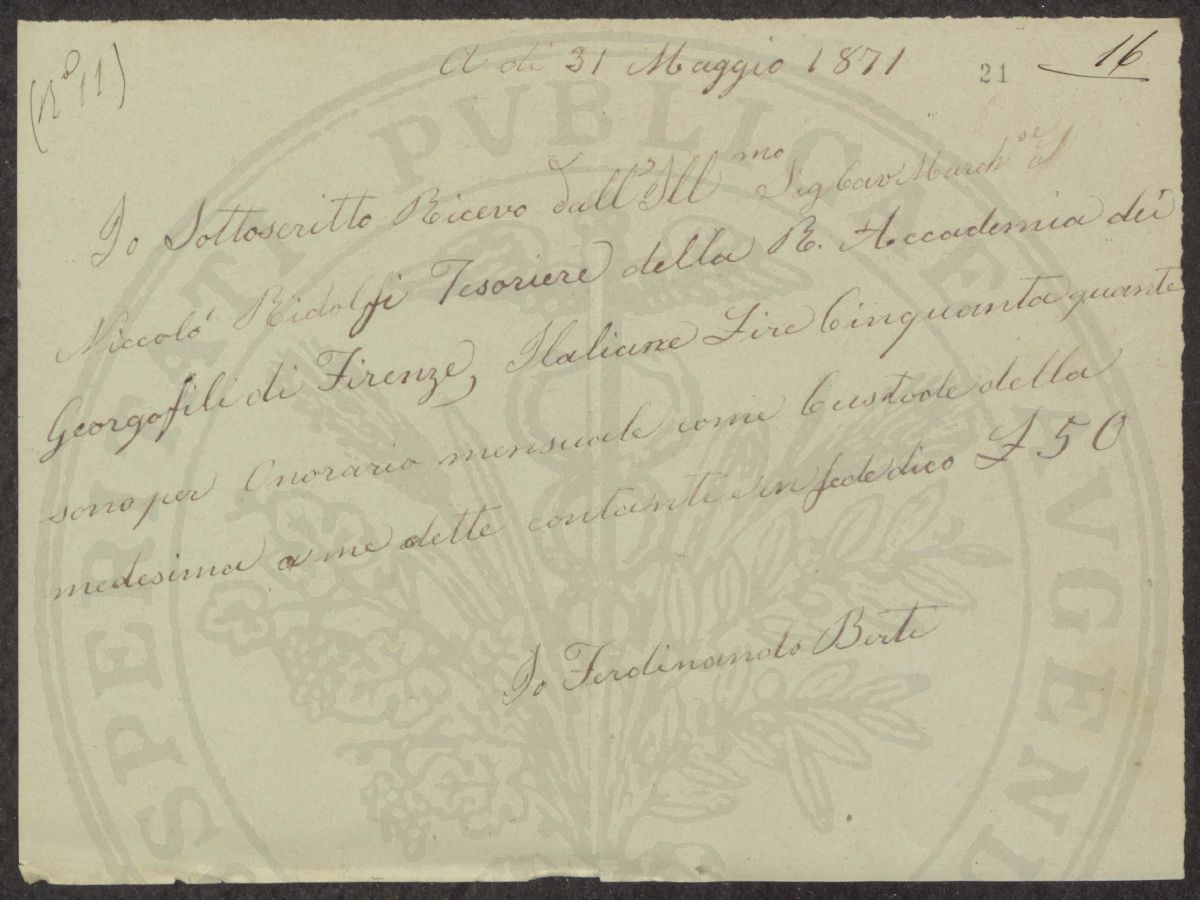 (N.º 11)
A dì 31 Maggio 1871
21
16
Io Sottoscritto Ricevo dall' Ill.mo Sig Cav March.se
Niccolò Ridolfi Tesoriere della R. Accademia dei
Georgofili di Firenze, Italiane Lire Cinquanta quante
sono per Onorario mensuale come Custode della
medesima a me dette contanti e in fede dico £ 50
Io Ferdinando Berti
PROSPERITATI PUBLICAE AVGEND